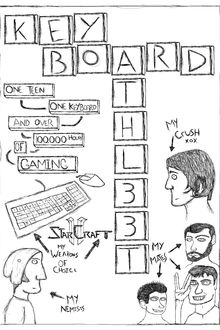 KEY
BOARD
ATHL33T
ONE TEEN
ONE KEYBOARD
AND OVER
100000 HOURS
OF
GAMING
MY
CRUSH
XOX
STARCRAFT
II
MY
WEAPONS
OF
CHOICE
MY
MATES
MY
NEMISIS